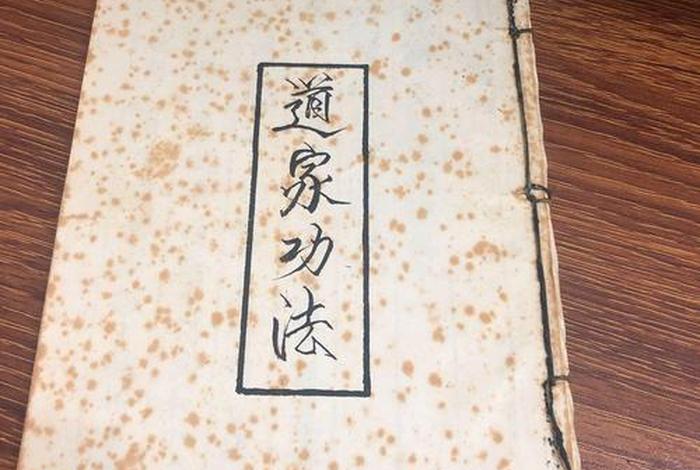 道家功法